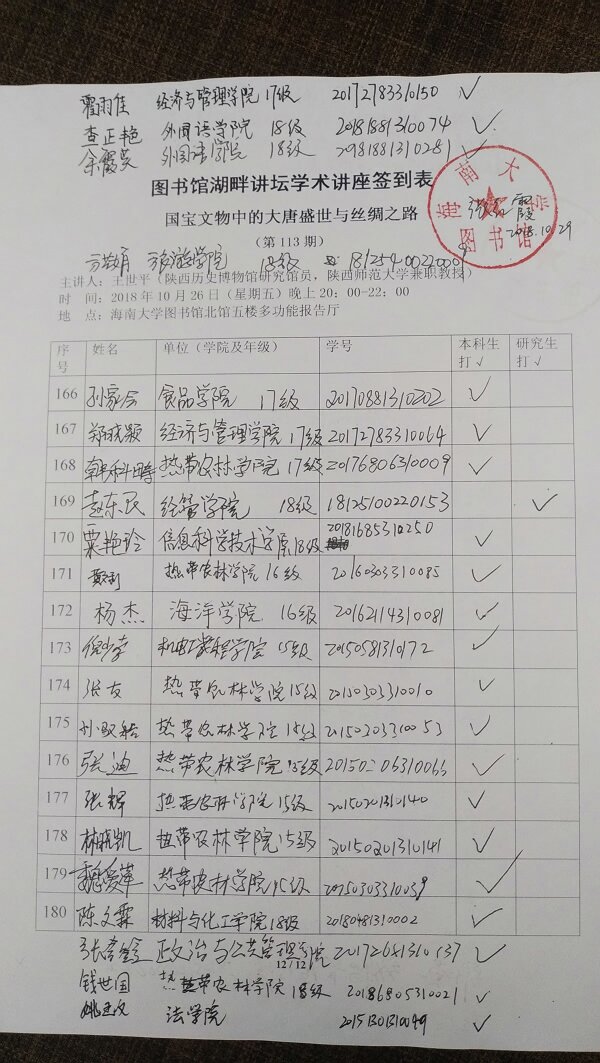 瞿雨佳 经济与管理学院17级 20172783310150 ✓
查正艳 外国语学院 18级 20181881310074 ✓
余霞英 外国语学院 18级 20181881310281 ✓
图书馆湖畔讲坛学术讲座签到表
海南大学
图书馆
国宝文物中的大唐盛世与丝绸之路
2018.10.29
(第113期)
旅游学院 18级 18125400220009
主讲人:王世平(陕西历史博物馆研究馆员,陕西师范大学兼职教授)
时 间:2018年10月26日(星期五)晚上20:00-22:00
地 点:海南大学图书馆北馆五楼多功能报告厅
序号 姓名 单位(学院及年级) 学号 本科生打√ 研究生打√
166 孙家会 食品学院 17级 20170881310202 ✓
167 郑晓颖 经济与管理学院17级 20172783310064 ✓
168 韩科畴 热带农林学院17级 20176806310009 ✓
169 赵东民 经管学院 18级 18125100220153 ✓
170 粟艳玲 信息科学技术学院18级 20181685310250 ✓
171 热带农林学院16级 20160303310085 ✓
172 杨杰 海洋学院 16级 20162114310081 ✓
173 机电工程学院15级 20150581310172 ✓
174 张友 热带农林学院15级 20150303310010 ✓
175 热带农林学院15级 20150303310053 ✓
176 张迪 热带农林学院15级 ✓
177 张辉 热带农林学院15级 20150201310140 ✓
178 林晓凯 热带农林学院15级 20150201310141 ✓
179 魏爱苹 热带农林学院15级 20150303310039 ✓
180 陈文霖 材料与化工学院18级 20180481310002 ✓
政治与公共管理学院 20172681310137 ✓
12/12
钱世国 热带农林学院18级 20186805310021 ✓
法学院 20151301310049 ✓